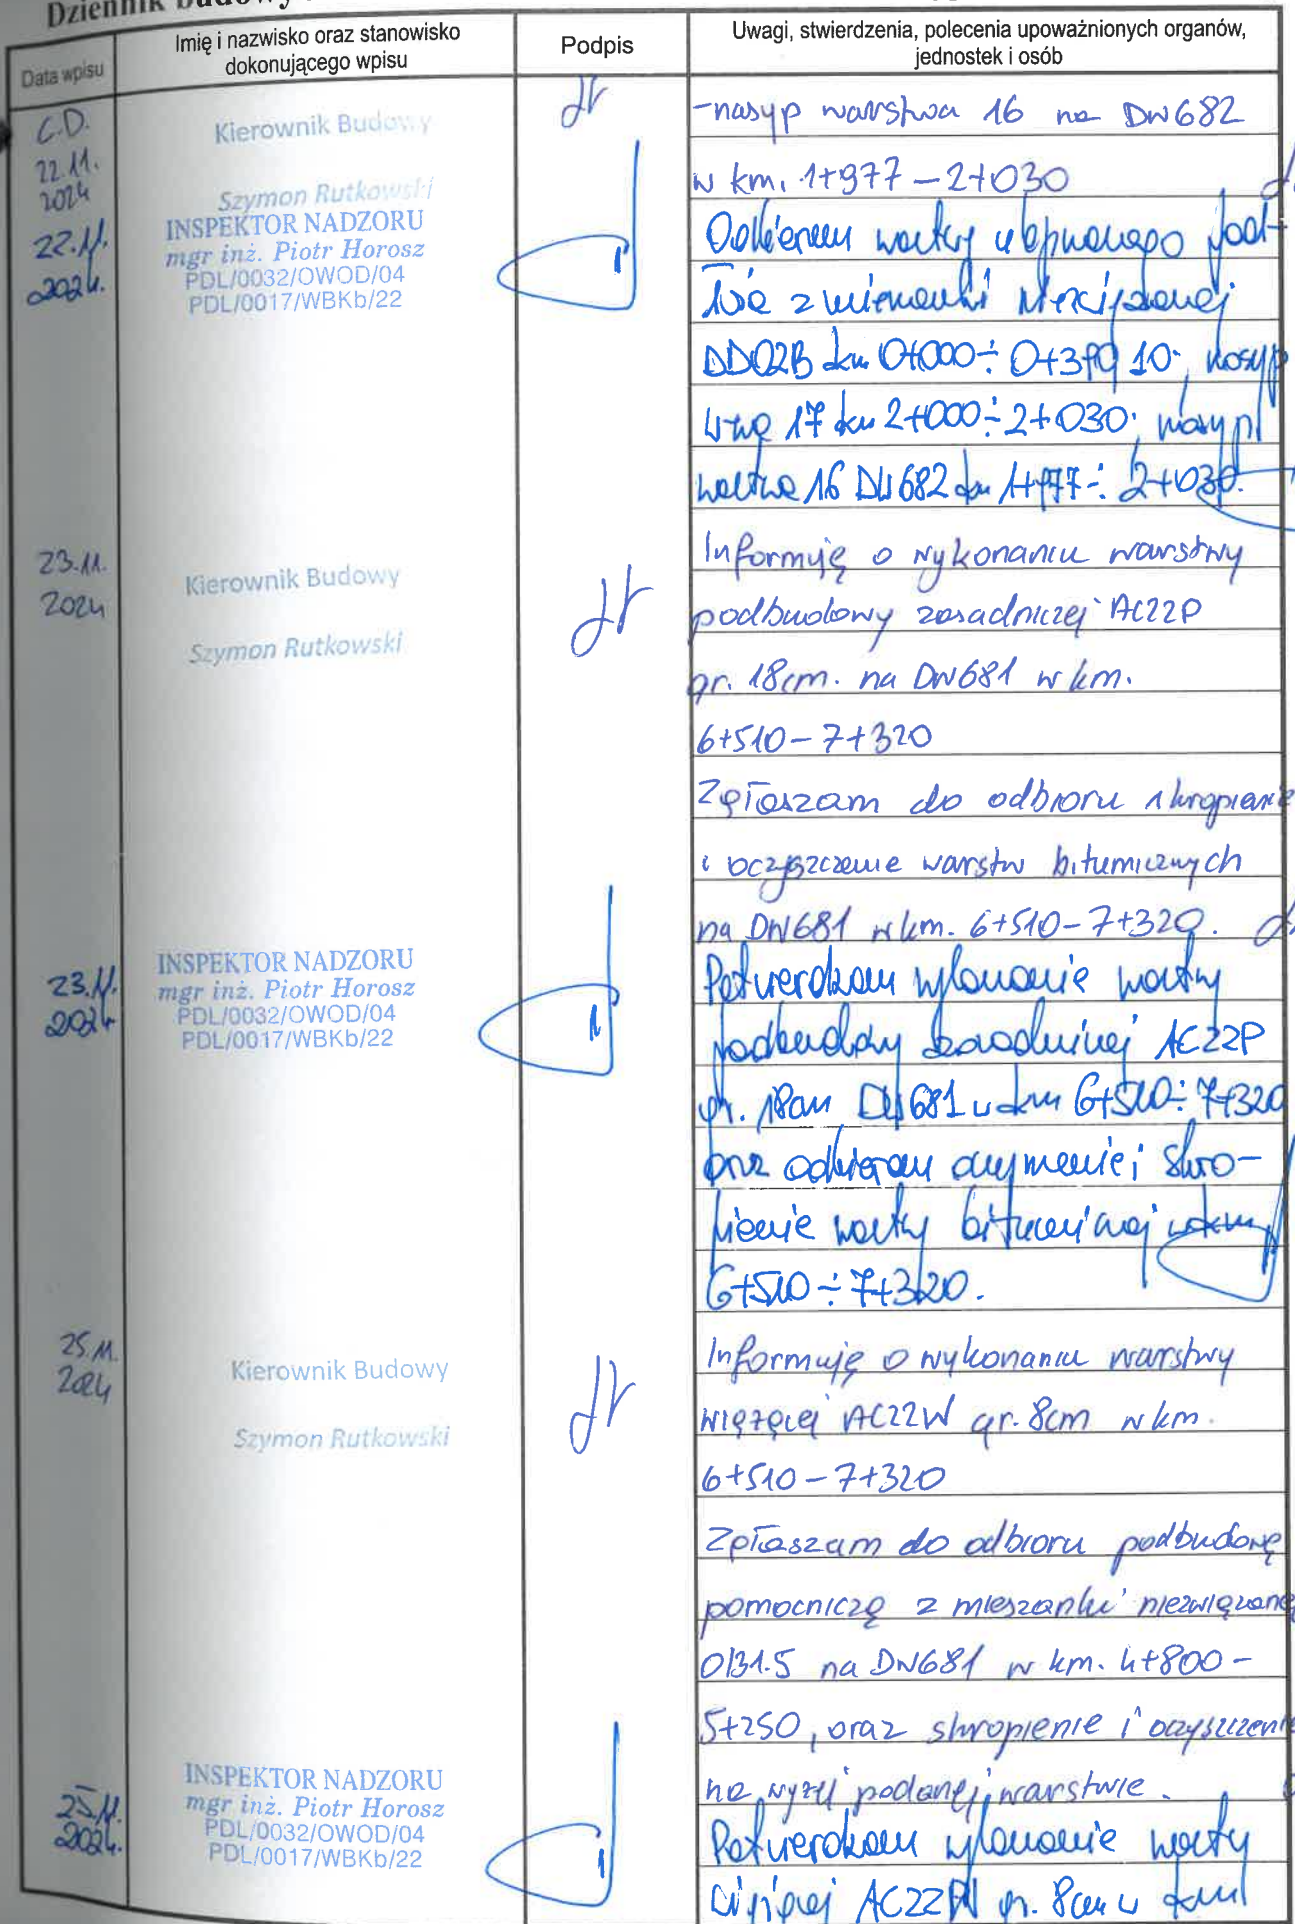 Dziennik Budowy
Data wpisu
Imię i nazwisko oraz stanowisko
dokonującego wpisu
Podpis
Uwagi, stwierdzenia, polecenia upoważnionych organów,
jednostek i osób
C.D.
22.11.
2024
Kierownik Budowy
Szymon Rutkowski
-nasyp warstwa 16 na DW682
w km. 1+977 – 2+030
22.11.
2024.
INSPEKTOR NADZORU
mgr inż. Piotr Horosz
PDL/0032/OWOD/04
PDL/0017/WBKb/22
Odbieram warstwy podło-
że z mieszanki niezwiązanej
DD02B km 0+000 ÷ nasyp
17 km 2+000 ÷ 2+030; nasyp
warstwa 16 DW 682 km 1+977 ÷ 2+030.
23.11.
2024
Kierownik Budowy
Szymon Rutkowski
Informuję o wykonaniu warstwy
podbudowy zasadniczej AC22P
gr. 18cm. na DW681 w km.
6+510 – 7+320
Zgłaszam do odbioru skropienie
i oczyszczenie warstw bitumicznych
na DW681 w km. 6+510 – 7+320.
23.11.
2024
INSPEKTOR NADZORU
mgr inż. Piotr Horosz
PDL/0032/OWOD/04
PDL/0017/WBKb/22
Potwierdzam wykonanie warstwy
podbudowy zasadniczej AC22P
gr. 18cm DW681 w km 6+510 ÷ 7+320
oraz odbieram oczyszczenie i skro-
pienie warstwy bitumicznej w km
6+510 ÷ 7+320.
25.11.
2024
Kierownik Budowy
Szymon Rutkowski
Informuję o wykonaniu warstwy
wiążącej AC22W gr. 8cm w km.
6+510 – 7+320
Zgłaszam do odbioru podbudowę
pomocniczą z mieszanki niezwiązanej
0/31.5 na DW681 w km. 4+800 –
5+250, oraz skropienie i oczyszczenie
na wyżej podanej warstwie.
25.11.
2024.
INSPEKTOR NADZORU
mgr inż. Piotr Horosz
PDL/0032/OWOD/04
PDL/0017/WBKb/22
Potwierdzam wykonanie warstwy
wiążącej AC22W gr. 8cm w km